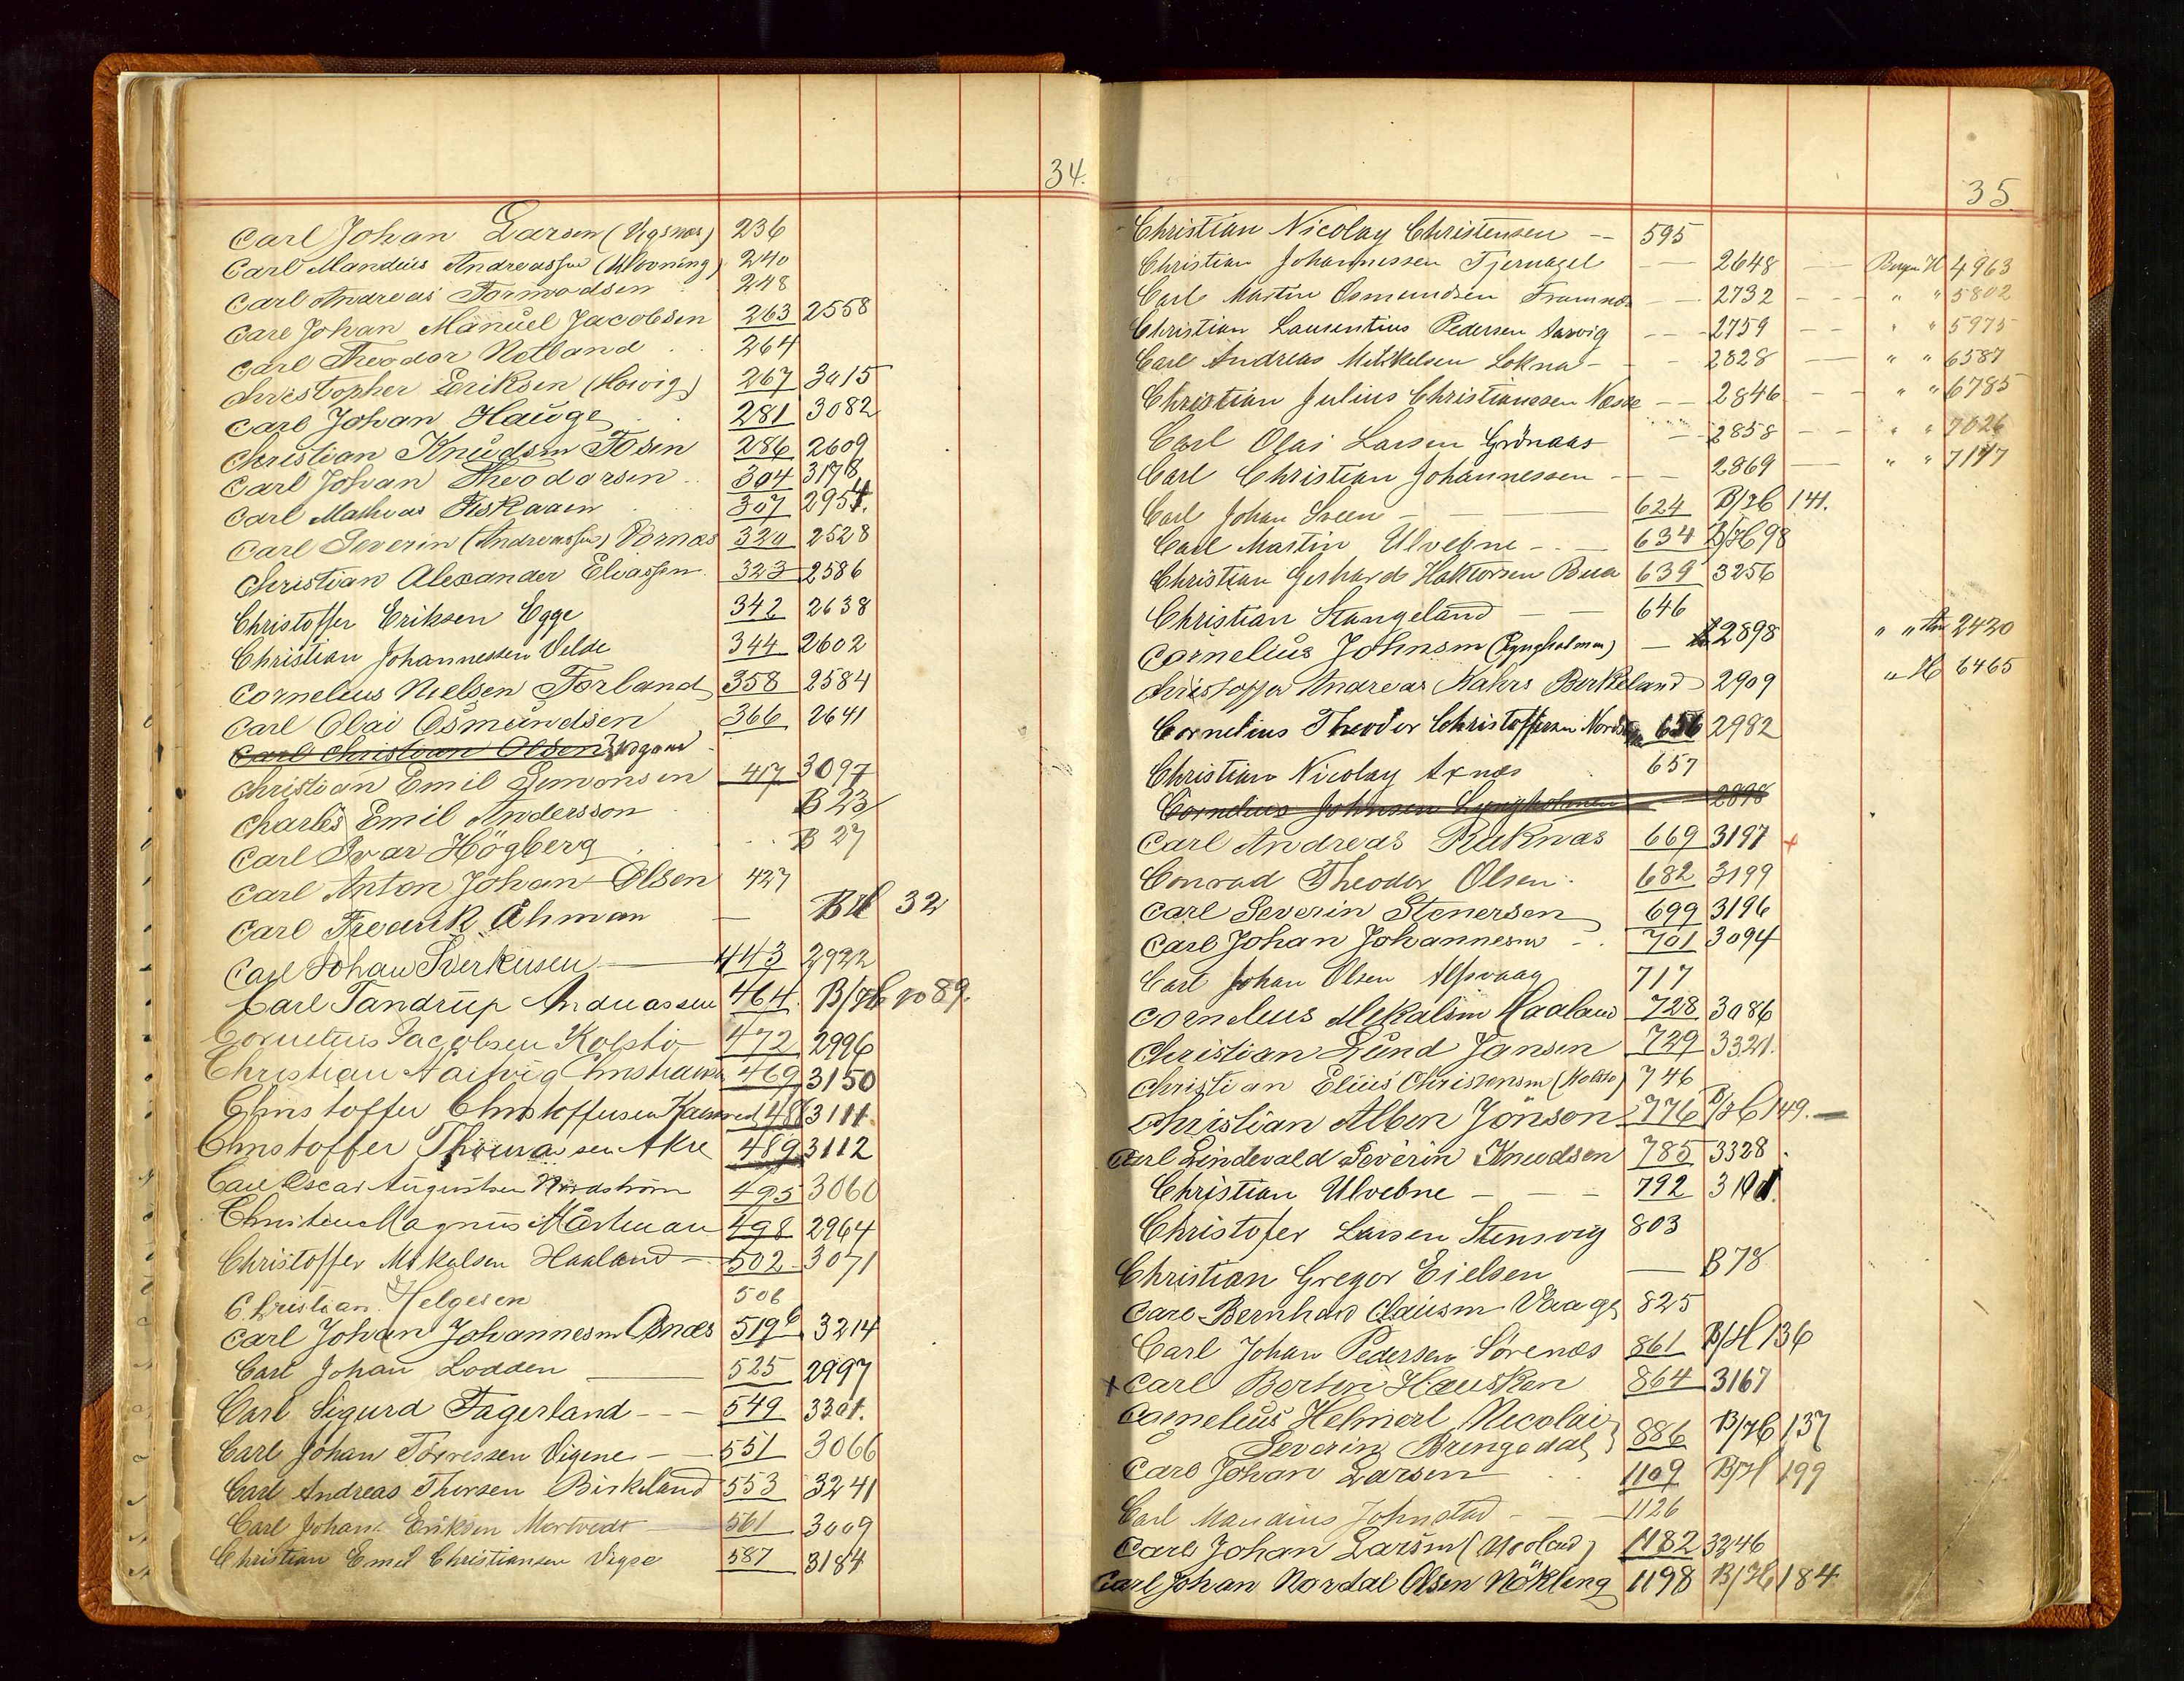 34.
Carl Johan Larsen (Vigsnæs) 236
Carl Mandius Andreassen 240
Carl Andreas Tormodsen 248
Carl Johan Manuel Jacobsen 263 2558
Carl Theodor Netland 264
Christopher Eriksen (Hovig) 267 3015
Carl Johan Hauge 281 3082
Christian Knudsen Tosen 286 2609
Carl Johan Theodorsen 304 3178
Carl Mathias Fiskaaen 307 2954.
Carl Severin (Andreassen) Vornæs 320 2528
Christian Alexander Eliassen 323 2586
Christoffer Eriksen Egge 342 2638
Christian Johannessen Velde 344 2602
Cornelius Nielsen Forland 358 2584
Carl Olai Osmundsen 366 2641
Carl Christian Olsen
Christian Emil Simonsen 417 3097
Charles Emil Andersson B 23
Carl Ivar Högberg B 27
Carl Anton Johan Olsen 427
Carl Frederik Åhman — B/H 32
Carl Johan Sverkusen 443 2922
Carl Tandrup Andreassen 464. B/H no 89.
Cornelius Jacobsen Kolstö 472 2996
Christian Aarsvig Christiansen 469 3150
Christoffer Christoffersen 486 3111
Christoffer Thomassen Akre 489 3112
Carl Oscar Augustsen Nordström 495 3060
Christian Magnus Mårtman 498 2964
Christoffer Mikalsen Haaland 502 3071
Christian Helgesen 506
Carl Johan Johannesen Asnæs 519b 3214
Carl Johan Lodden 525 2997
Carl Sigurd Fagerland 549 3301.
Carl Johan Torressen Vigene 551 3066
Carl Andreas Thorsen Birkeland 553 3241
Carl Johan Eriksen Mortvedt 561 3009
Christian Emil Christiansen Vigse 587 3184
35
Christian Nicolay Christensen 595
Christian Johannessen Tjernagel 2648 Bergen H 4963
Carl Martin Osmundsen Framnæs 2732 " " 5802
Christian Laurentius Pedersen Aarvig 2759 " " 5975
Carl Andreas Mikkelsen Lokna 2828 " " 6587
Christian Julius Christianssen Næsse 2846 " " 6785
Carl Olai Larsen Grönaas 2858 " " 7026
Carl Christian Johannessen 2869 " " 7147
Carl Johan Sveen 624 B/H 141.
Carl Martin Ulvebne 634 B/H 98
Christian Gerhard Haktorsen Bua 639 3256
Christian Stangeland 646
Cornelius Johnsen (Lyngholmen) 2898 " " 2420
Christoffer Andreas Nahrs Berkeland 2909 " H 6465
Cornelius Theodor Christoffersen 656 2982
Christian Nicolay Axnæs 657
Cornelius Johnsen Lyngholmen 2898
Carl Andreas Ruknæs 669 3197 +
Conrad Theodor Olsen 682 3199
Carl Severin Stenersen 699 3196
Carl Johan Johannesen 701 3094
Carl Johan Olsen Alfsvaag 717
Cornelius Mekalsen Haaland 728 3086
Christian Lund Jansen 729 3321.
Christian Elius Christensen (Holstø) 746
Christian Alben Jönson 776 B/H 149.
Carl Lindevald Severin Knudsen 785 3328
Christian Ulvebne 792 3101.
Christofer Larsen Stensvig 803
Christian Gregor Eielsen — B 78
Carl Bernhard Clausen Vaage 825
Carl Johan Pedersen Sørenæs 861 B/H 136
+ Carl Bertin Hausken 864 3167
Cornelius Helmerl Nicolai
Severin Brengedal } 886 B/H 137
Carl Johan Larsen 1109 B/H 199
Carl Mandius Johnstad 1126
Carl Johan Larsen 1182 3246
Carl Johan Nordal Olsen Nökling 1198 B/H 184